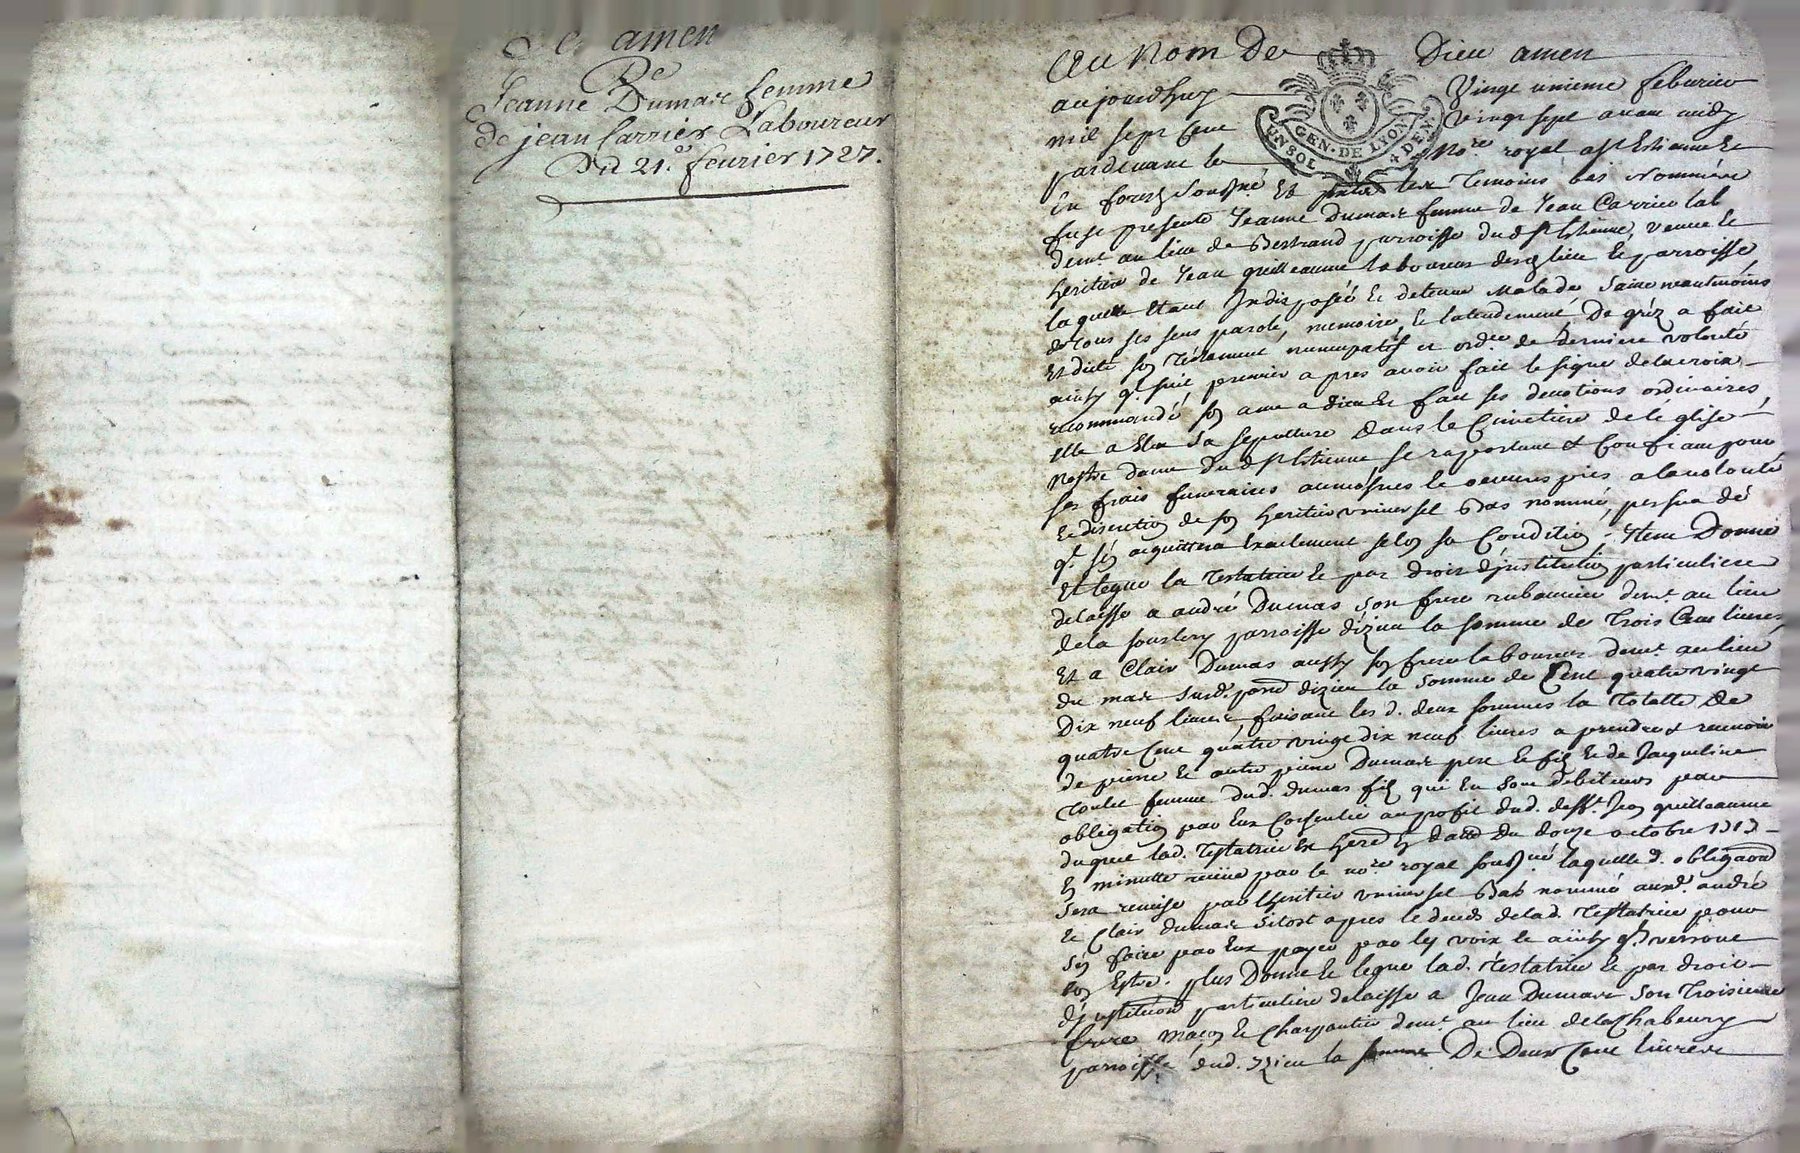 amen
De
Jeanne Dumas femme
de jean Carrier Laboureur
Du 21.e fevrier 1727.
Au Nom De Dieu amen
aujourdhuy Vingt unieme feburier
mil sept Cent vingt sept avant midy
pardevant le No.re royal a St Estienne Et
En forest Soussné Et presents les Temoins bas Nommés
fust presente Jeanne Dumas femme de Jean Carrier lab
demt au lieu de Bertrand parroisse dud St Estienne, veuve Et
heritiere de Jean guilleaume laboureur desd lieu Et parroisse
laquelle Etant Indisposée Et detenue Malade Saine neantmoins
de tous ses sens parole, memoire, Et Entendement De gréz a fait
Et dicté son Testament nuncupatif et ordre de derniere volonté
ainsy q. suit premier apres avoir fait le signe de la croix
recommandé son ame a dieu Et fait ses devotions ordinaires,
Elle a Elu Sa sepulture Dans le Cimetiere de l'eglise
Nostre dame dud St Estienne se raportant Et Confiant pour
ses frais funeraires aumosnes Et oeuvres pies a la volonté
Et discretion de son heritier universel Bas nommé persuadé
q. s'en aquittera Exactement selon sa Condition, Item Donne
Et legue la Testatrice Et par droit d'institution particuliere
delaisse a andré Dumas son frere rubannier demt au lieu
de la parroisse d'izieu la somme de Trois Cent livres,
Et a Clair Dumas aussy son frere laboureur demt au lieu
du mas susd. parroisse dizieu la somme de Cent quatre vingt
Dix neuf livres faisant les d. deux sommes la Totalle De
quatre Cent quatre vingt dix neuf livres a prendre Et recevoir
de pierre Et autre pierre Dumas pere Et fils Et de Jacqueline
femme dud. dumas fils qui En sont debiteurs par
obligation par Eux Consentie au profit dud. defft Jean guilleaume
duquel lad. Testatrice Est En datte du douze octobre 1713
En minutte reçue par le no.re royal soussné laquelle d. obligaon
sera remise par lheritier universel Bas nommé auxd. andré
Et Clair dumas sitost apres le deces de lad. Testatrice pour
s'en faire par Eux payer par les voix Et ainsy q. verront
bon Estre. plus Donne Et legue lad. Testatrice Et par droit
d'institution particuliere delaisse a Jean Dumas Son Troisieme
frere Maçon Et Charpentier demt au lieu de la Chabeury
parroisse dud. Izieu la somme De Deux Cent livres
GEN. DE LYON
UN SOL 4 DEN.